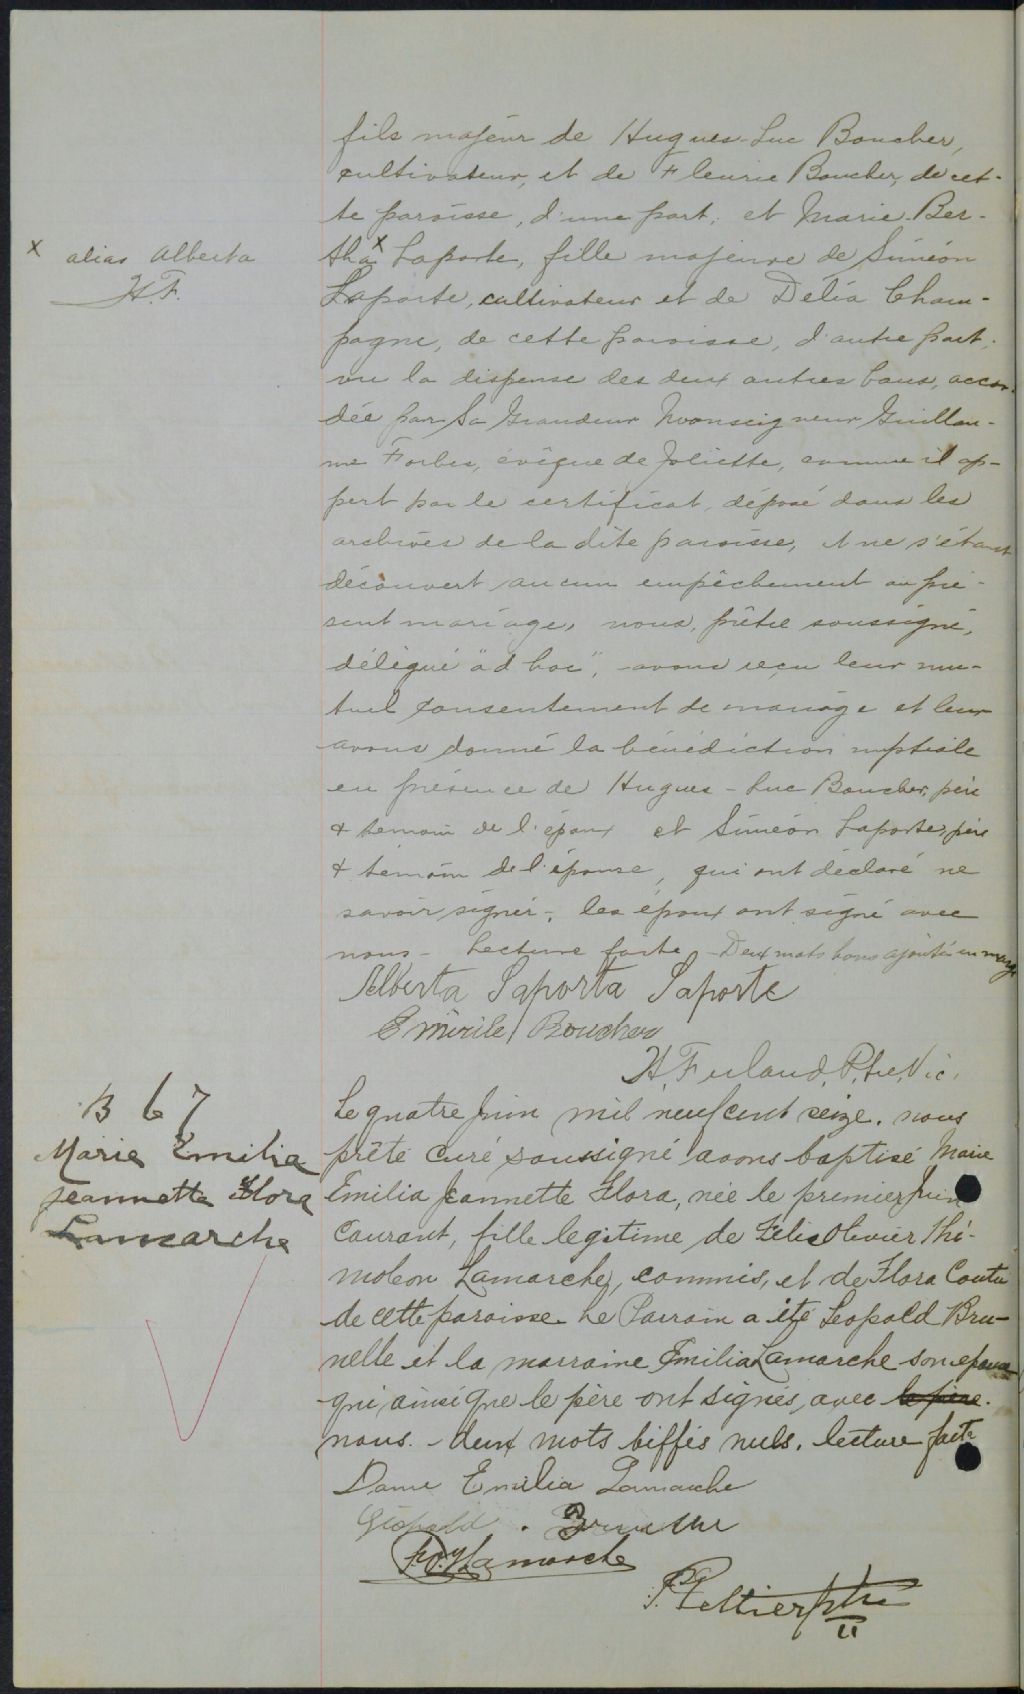 fils majeur de Hugues-Luc Boucher,
cultivateur, et de Fleurie Boucher, de cet-
te paroisse, d'une part; et Marie-Ber-
tha x Laporte, fille majeure de Siméon
x alias Alberta
H.F.
Laporte, cultivateur et de Délia Cham-
pagne, de cette paroisse, d'autre part;
vu la dispense des deux autres bans, accor-
dée par Sa Grandeur Monseigneur Guillau-
me Forbes, évêque de Joliette, comme il ap-
pert par le certificat, déposé dans les
archives de la dite paroisse, et ne s'étant
découvert aucun empêchement au pré-
sent mariage, nous, prêtre soussigné,
délégué "ad hoc", avons reçu leur mu-
tuel consentement de mariage et leur
avons donné la bénédiction nuptiale
en présence de Hugues-Luc Boucher, père
& témoin de l'époux et Siméon Laporte, père
& témoin de l'épouse, qui ont déclaré ne
savoir signer; les époux ont signé avec
nous - Lecture faite - Deux mots bons ajoutés en marge
Alberta Laporta Laporte
Emirile Boucher
H. Ferland, Ptre, Vic.
B 67
Marie Emilia
Jeannette Flora
Lamarche
Le quatre Juin mil neuf cent seize, nous
prêtê curé soussigné avons baptisé Marie
Emilia Jeannette Flora, née le premier Juin
courant, fille legitime de Félix Olivier Thi-
moleon Lamarche, commis, et de Flora Coutu
de cette paroisse. Le Parrain a été Leopold Bru-
nelle et la marraine Emilia Lamarche son epouse
qui, ainsi que le père ont signés, avec le père
nous. - deux mots biffés nuls. lecture faite
Dame Emilia Lamarche
Léopold. Brunelle
F.O.T. Lamarche
Pelletier ptre